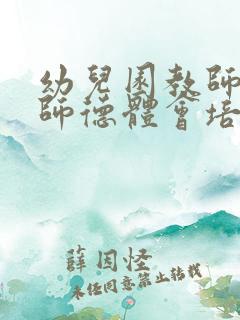 幼兒園教師
師德體會培
薛因怪
未经同意禁止转载